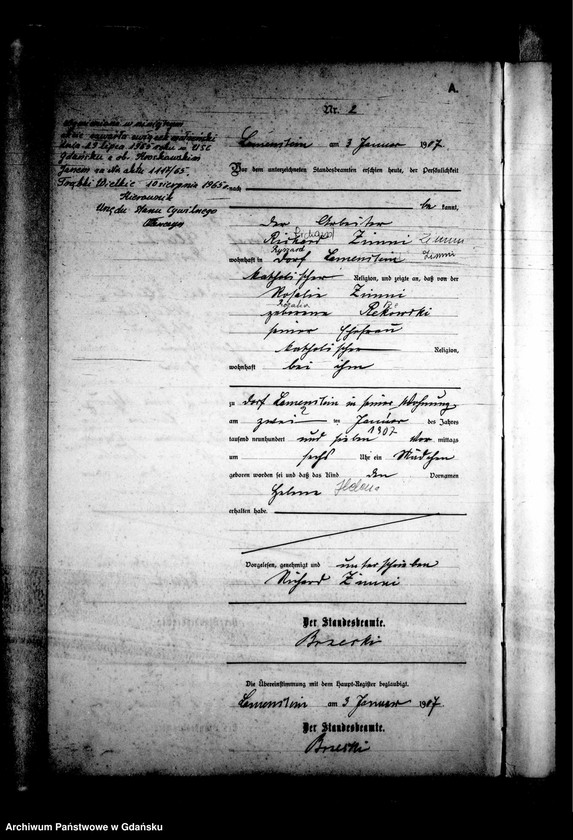 A.
Nr. 2
Wymieniona w niniejszym
akcie zawarła związek małżeński
dnia 19 lipca 1965 roku w USC
Gdańsku z ob. Moskawskim
Janem za Nr aktu 1111/65.
Trąbki Wielkie 10 sierpnia 1965 r.
Kierownik
Urzędu Stanu Cywilnego
Lamenstein am 3 Januar 1907.
Vor dem unterzeichneten Standesbeamten erschien heute, der Persönlichkeit
nach
be kannt,
der Arbeiter
Richard Zimni Zimni
Ryszard
wohnhaft in Dorf Lamenstein Zimni
katholischer Religion, und zeigte an, daß von der
Rosalie Zimni
Rozalia
geborene Rekowski
seiner Ehefrau
katholischer Religion,
wohnhaft bei ihm
zu Dorf Lamenstein in seiner Wohnung
am zwei ten Januar des Jahres
2 1907
tausend neunhundert und sieben Vor mittags
um sechs Uhr ein Mädchen
geboren worden sei und daß das Kind den Vornamen
Helene Helena
erhalten habe.
Vorgelesen, genehmigt und unterschrieben
Richard Zimni
Der Standesbeamte.
Brzeski
Die Übereinstimmung mit dem Haupt-Register beglaubigt.
Lamenstein am 3 Januar 1907.
Der Standesbeamte.
Brzeski
Archiwum Państwowe w Gdańsku